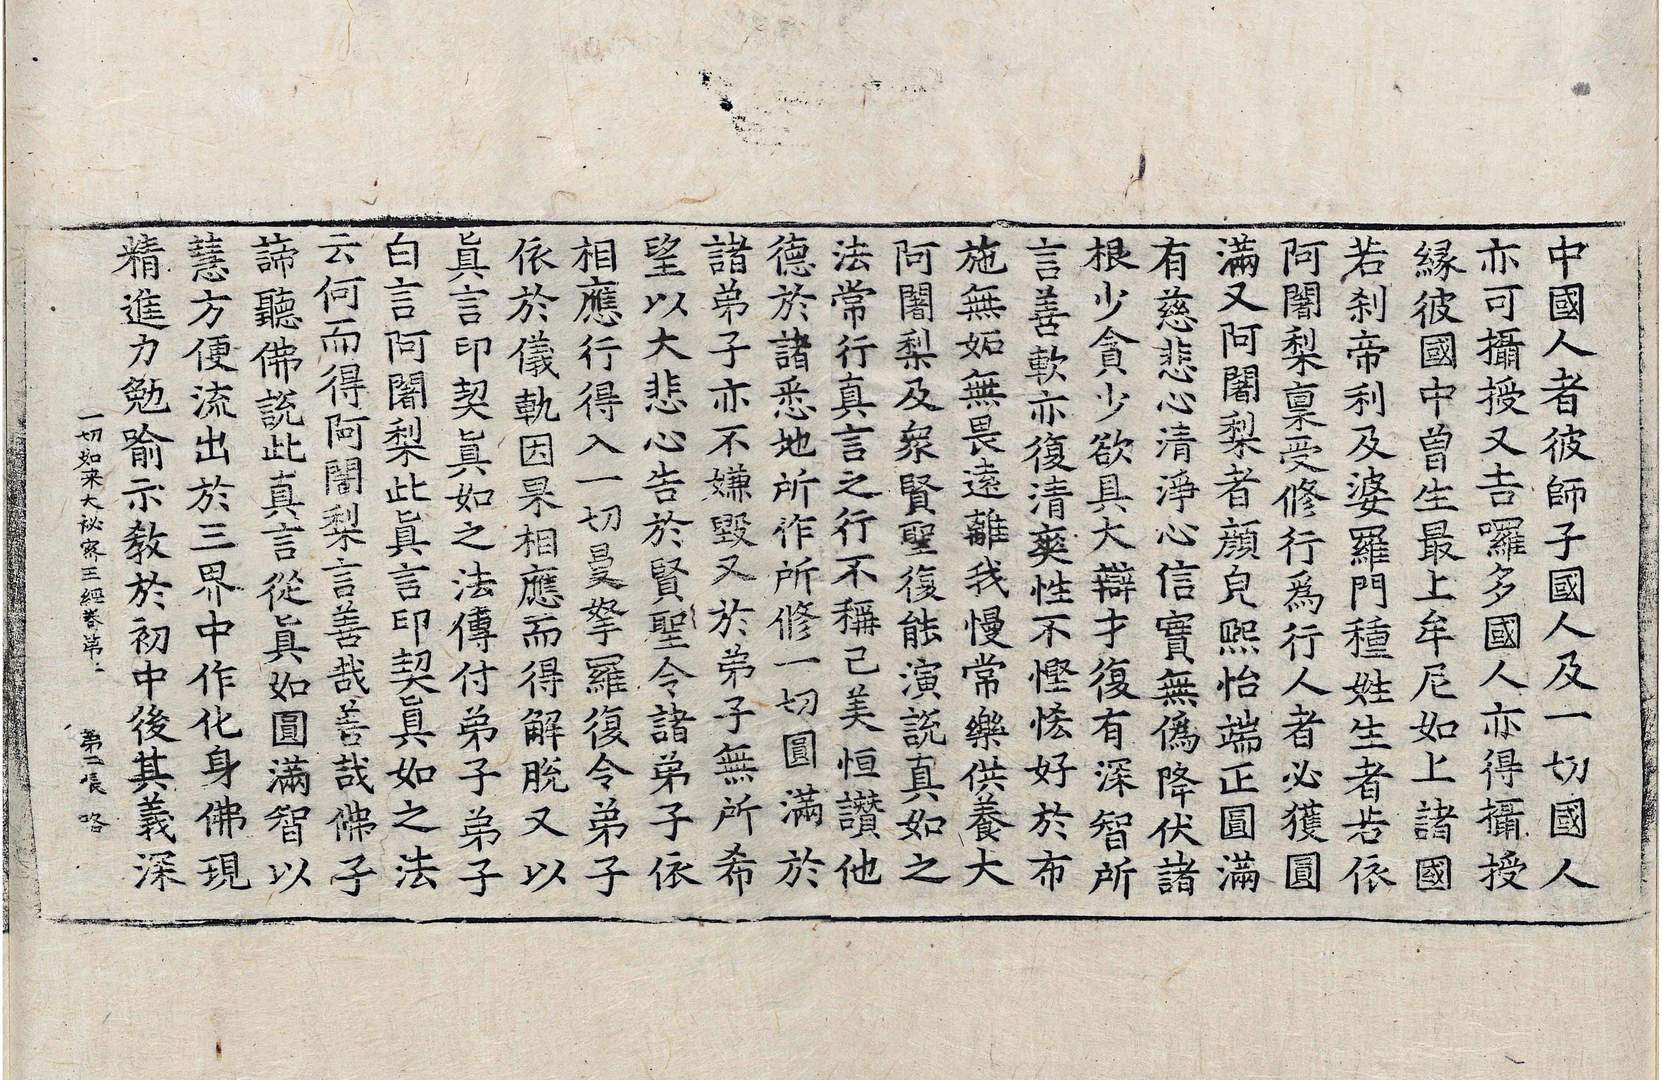 中國人者彼師子國人及一切國人
亦可攝授又吉囉多國人亦得攝授
緣彼國中曾生最上牟尼如上諸國
若刹帝利及婆羅門種姓生者若依
阿闍梨稟受修行爲行人者必獲圓
滿又阿闍梨者顔皃熙怡端正圓滿
有慈悲心清淨心信實無僞降伏諸
根少貪少欲具大辯才復有深智所
言善軟亦復清爽性不慳悋好於布
施無妬無畏遠離我慢常樂供養大
阿闍梨及衆賢聖復能演說真如之
法常行真言之行不稱己美恒讃他
德於諸悉地所作所修一切圓滿於
諸弟子亦不嫌毀又於弟子無所希
望以大悲心告於賢聖令諸弟子依
相應行得入一切曼拏羅復令弟子
依於儀軌因果相應而得解脫又以
眞言印契眞如之法傳付弟子弟子
白言阿闍梨此眞言印契眞如之法
云何而得阿闍梨言善哉善哉佛子
諦聽佛說此真言從眞如圓滿智以
慧方便流出於三界中作化身佛現
精進力勉喻示教於初中後其義深
一切如來大秘密王經卷第二 第二張 咯